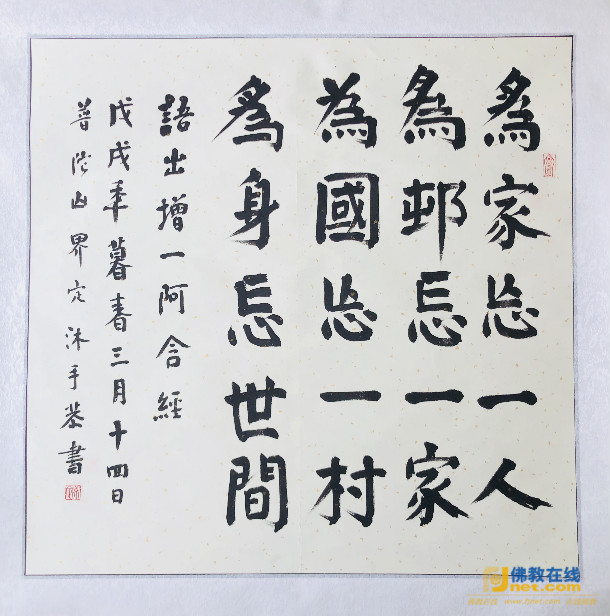 為家忘一人
為邨忘一家
為國忘一村
為身忘世間
語出增一阿含經
戊戌年暮春三月十四日
普陀山界定沐手恭書
佛教在线
net.com